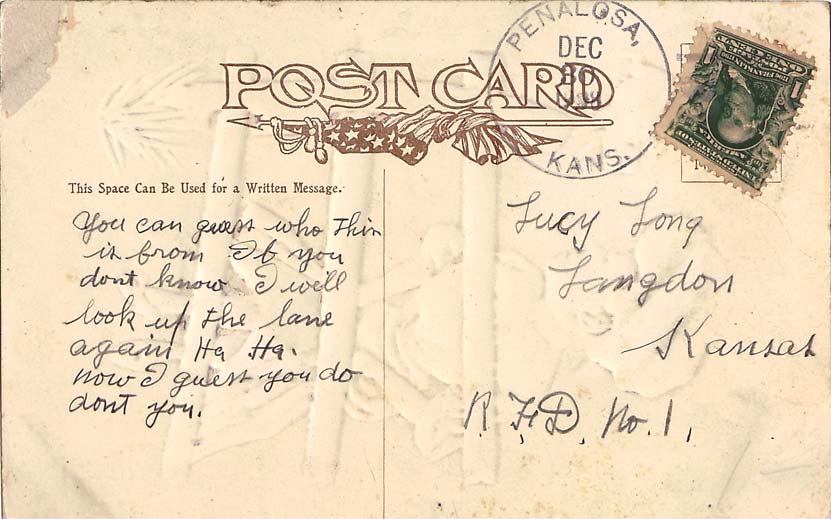 POST CARD
PENALOSA,
DEC
KANS.
This Space Can Be Used for a Written Message.
You can guess who this
is from If you
dont know I will
look up the lane
again Ha Ha.
now I guess you do
dont you.
Lucy Long
Langdon
Kansas
R.F.D. No. 1.
1 1